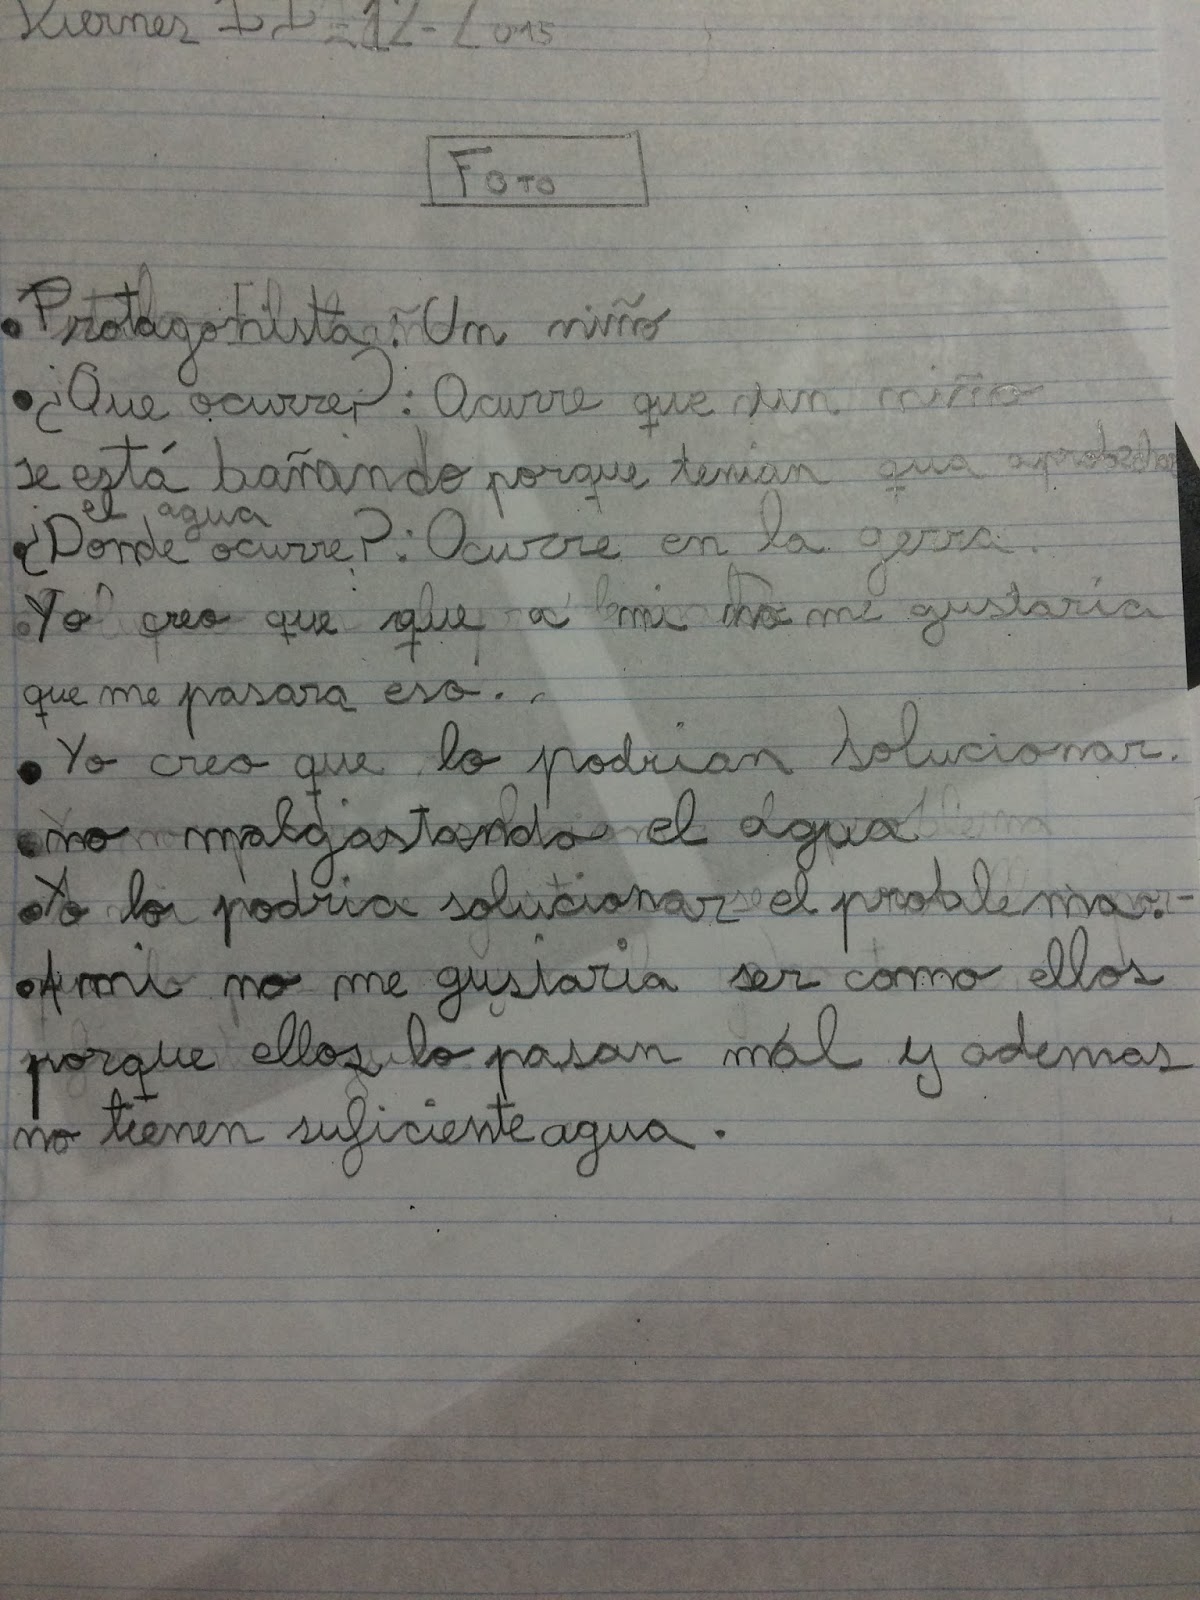 Viernes 11-12-2015
FOTO
• Protagonista: Un niño
• ¿Que ocurre?: Ocurre que un niño
se está bañando porque tenian que
el agua
• ¿Donde ocurre?: Ocurre en la gerra.
• Yo creo que que a mi no me gustaria
que me pasara eso..
• Yo creo que lo podrian solucionar.
• no malgastando el agua
• Yo lo podria solucionar el problema.-
• A mi no me gustaria ser como ellos
porque ellos lo pasan mal y ademas
no tienen suficiente agua.